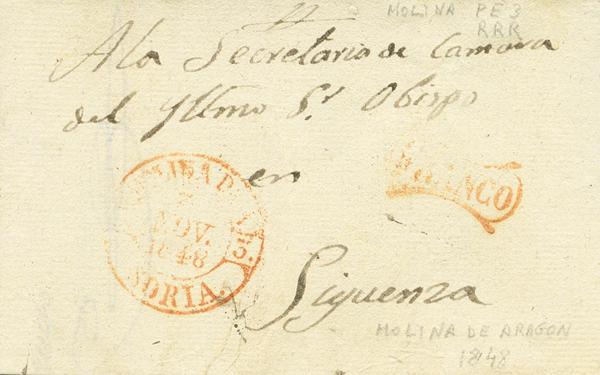 11
MOLINA PE 3
RRR
A la Secretaria de Camara
del Yltmo Sr Obispo
en
FRANCO
MOLINA D
NOV.
1848
5.
SORIA.
Siguenza
MOLINA DE ARAGON
1848